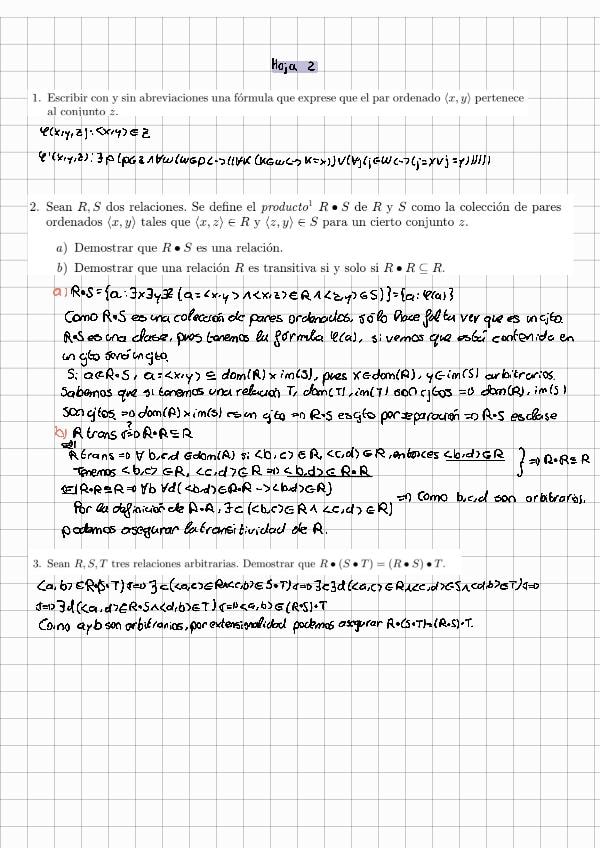 Hoja 2
1. Escribir con y sin abreviaciones una fórmula que exprese que el par ordenado ⟨x, y⟩ pertenece
al conjunto z.
φ(x,y,z): <x,y> ∈ z
2. Sean R, S dos relaciones. Se define el producto¹ R • S de R y S como la colección de pares
ordenados ⟨x, y⟩ tales que ⟨x, z⟩ ∈ R y ⟨z, y⟩ ∈ S para un cierto conjunto z.
a) Demostrar que R • S es una relación.
b) Demostrar que una relación R es transitiva si y solo si R • R ⊆ R.
a) R•S = {a: ∃x∃y∃z (a=<x,y> ∧ <x,z> ∈ R ∧ <z,y> ∈ S)} = {a: φ(a)}
Como R•S es una colección de pares ordenados, sólo hace falta ver que es un cjto.
R•S es una clase, pues tenemos la fórmula φ(a), si vemos que está contenida en
un cjto será un cjto.
Si a∈R•S, a=<x,y> ⊆ dom(R) × im(S), pues x∈dom(R), y∈im(S) arbitrarios.
Sabemos que si tenemos una relación T, dom(T), im(T) son cjtos => dom(R), im(S)
son cjtos => dom(R)×im(S) es un cjto => R•S es cjto por separación => R•S es clase
b) R trans <=?=> R•R ⊆ R
=>| R trans => ∀ b,c,d ∈ dom(R) si <b,c> ∈ R, <c,d> ∈ R, entonces <b,d> ∈ R } => R•R ⊆ R
Tenemos <b,c> ∈ R, <c,d> ∈ R => <b,d> ∈ R•R
<=| R•R ⊆ R => ∀b ∀d (<b,d> ∈ R•R -> <b,d> ∈ R)
Por la definición de R•R, ∃c (<b,c> ∈ R ∧ <c,d> ∈ R) => Como b,c,d son arbitrarios,
podemos asegurar la transitividad de R.
3. Sean R, S, T tres relaciones arbitrarias. Demostrar que R • (S • T) = (R • S) • T.
<a,b> ∈ R•(S•T) <=> ∃c(<a,c> ∈ R ∧ <c,b> ∈ S•T) <=> ∃c∃d(<a,c> ∈ R ∧ <c,d> ∈ S ∧ <d,b> ∈ T) <=>
<=> ∃d(<a,d> ∈ R•S ∧ <d,b> ∈ T) <=> <a,b> ∈ (R•S)•T
Como a y b son arbitrarios, por extensionalidad podemos asegurar R•(S•T)=(R•S)•T.